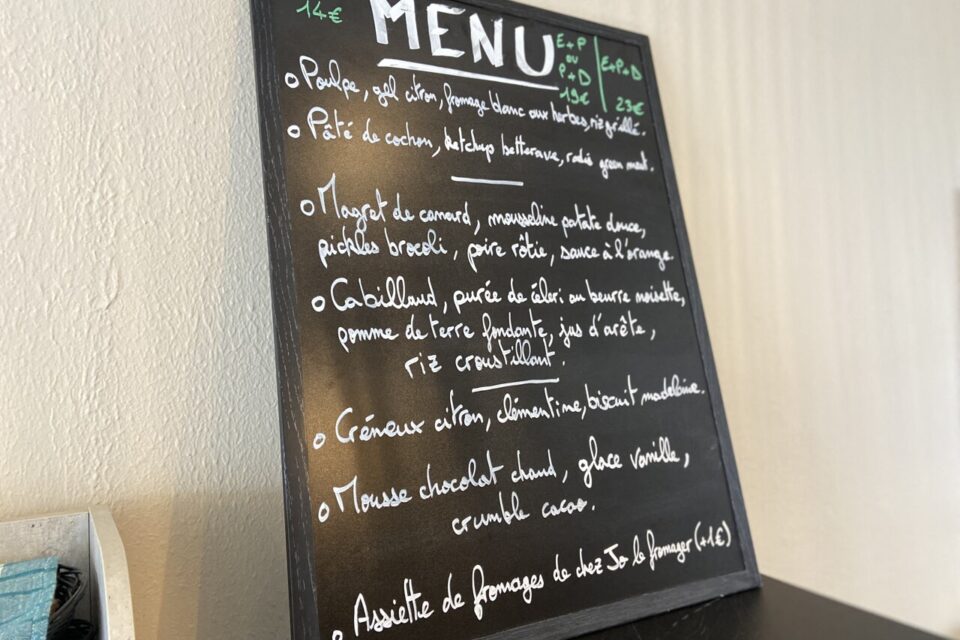 14€
MENU
E+P
ou
P+D
19€
E+P+D
23€
Poulpe, gel citron, fromage blanc aux herbes, riz grillé.
Pâté de cochon, ketchup betterave, radis green meat.
Magret de canard, mousseline patate douce,
pickles brocoli, poire rôtie, sauce à l'orange.
Cabillaud, purée de céleri au beurre noisette,
pomme de terre fondante, jus d'arête,
riz croustillant.
Crémeux citron, clémentine, biscuit madeleine.
Mousse chocolat chaud, glace vanille,
crumble cacao.
Assiette de fromages de chez Jo le fromager (+1€)